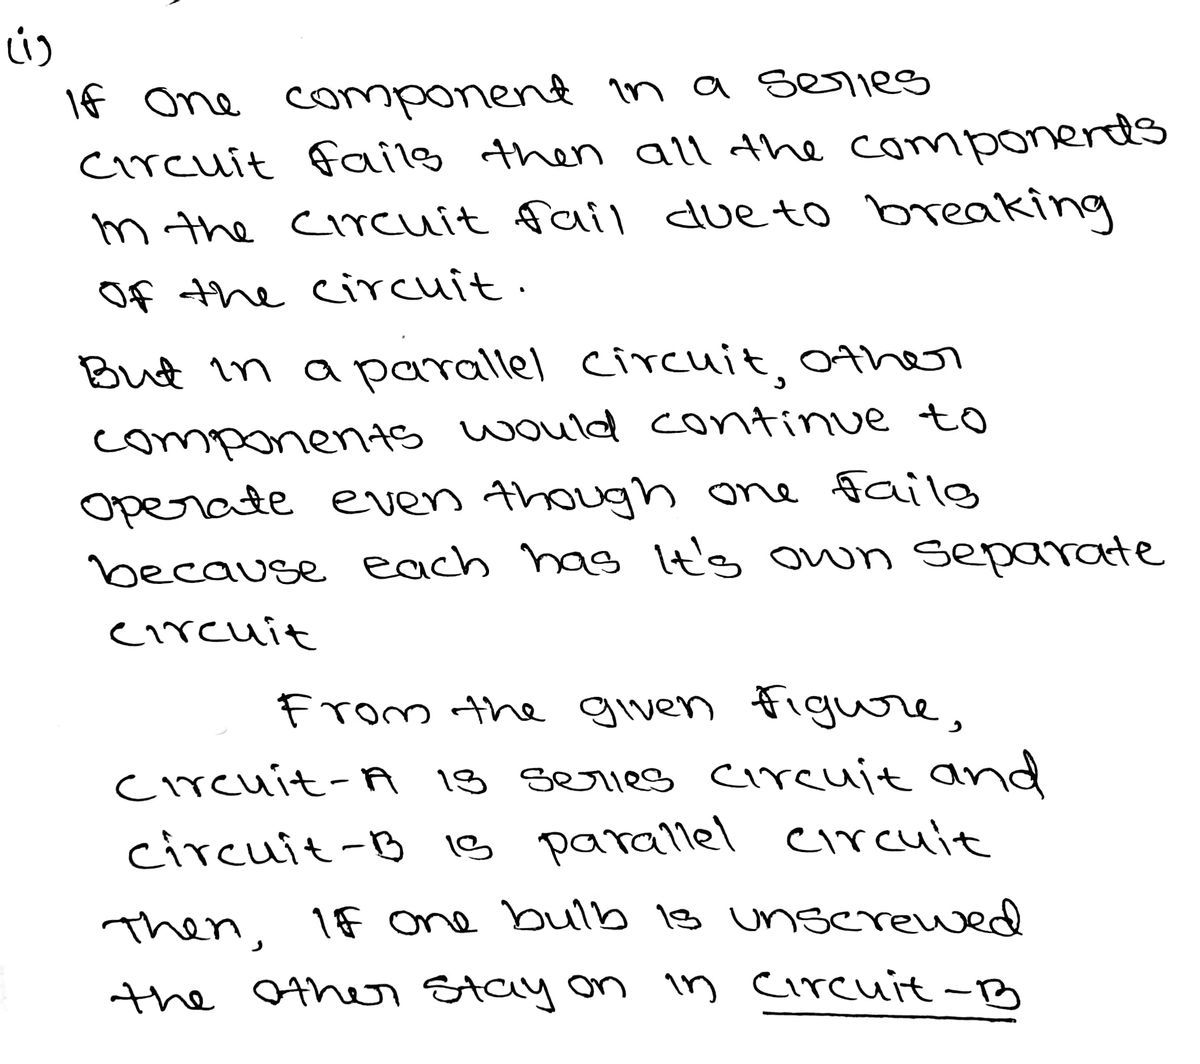 (i)
If one component in a series
circuit fails then all the components
in the circuit fail due to breaking
of the circuit.
But in a parallel circuit, other
components would continue to
operate even though one fails
because each has it's own separate
circuit
From the given figure,
circuit-A is series circuit and
circuit-B is parallel circuit
Then, If one bulb is unscrewed
the other stay on in circuit-B